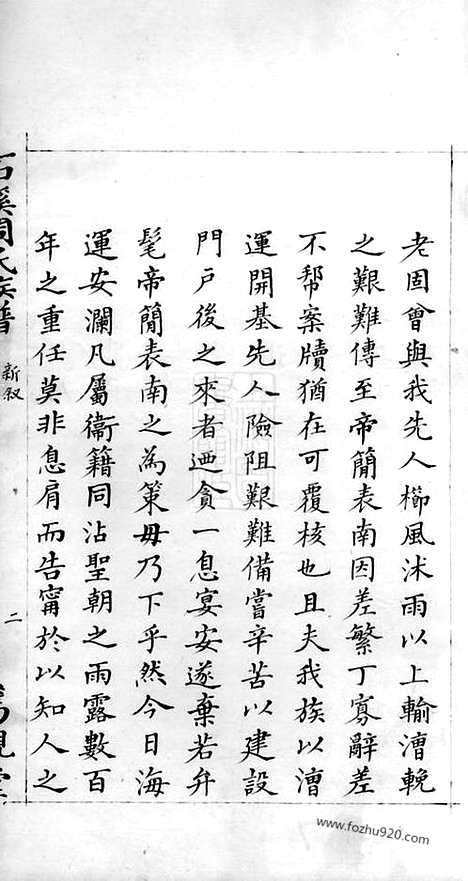 老固曾與我先人櫛風沐雨以上輸漕輓
之艱難傳至帝簡表南因差繁丁寡辭差
不幫案牘猶在可覆核也且夫我族以漕
運開基先人險阻艱難備嘗辛苦以建設
門戶後之來者迺貪一息宴安遂棄若弁
髦帝簡表南之為策毋乃下乎然今日海
運安瀾凡屬衞籍同沾聖朝之雨露數百
年之重任莫非息肩而告甯於以知人之
石溪周氏族譜
新叙
二
www.fozhu920.com